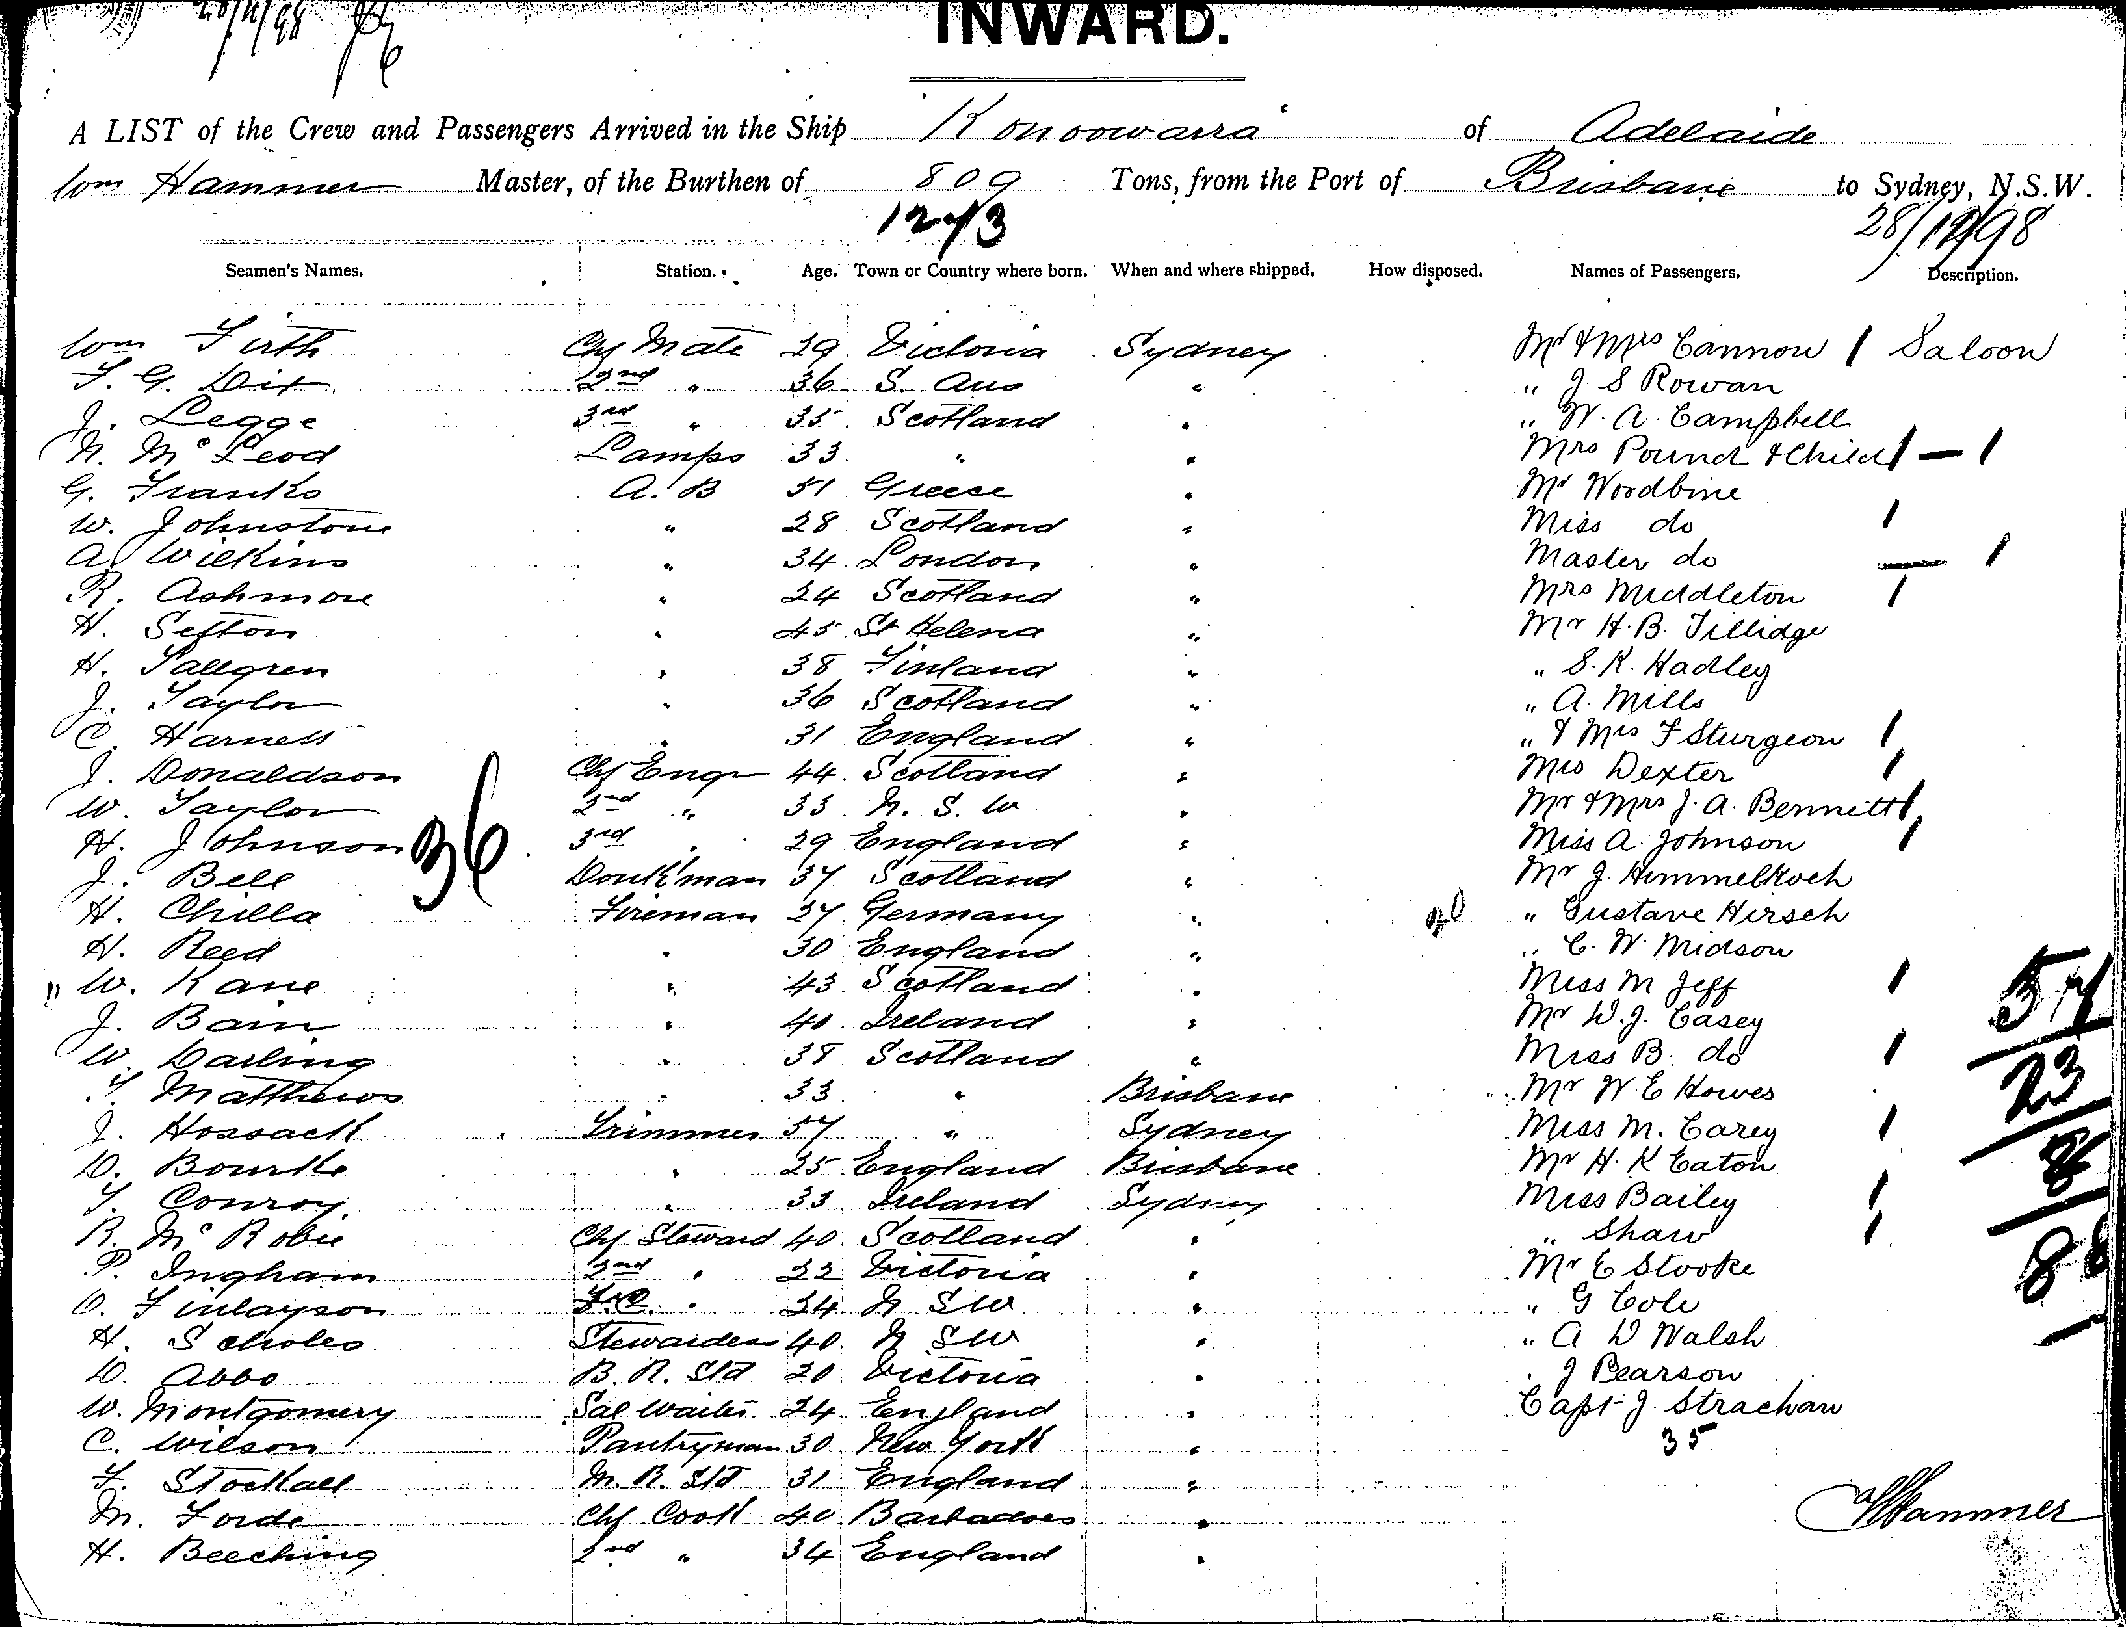 INWARD.
A LIST of the Crew and Passengers Arrived in the Ship Konoowarra of Adelaide
Wm Hammer Master, of the Burthen of 809 Tons, from the Port of Brisbane to Sydney, N.S.W.
1273 28/12/98
Seamen's Names. Station. Age. Town or Country where born. When and where shipped. How disposed. Names of Passengers. Description.
Wm Firth Chf Mate 29 Victoria Sydney Mr & Mrs Cannon / Saloon
F. G. Dix 2nd " 36 S. Aus " " J S Rowan
J. Legge 3rd " 35 Scotland " " W. A. Campbell
N. McLeod Lamps 33 " " Mrs Pound & Child / — /
G. Franks A. B 51 Greece " Mr Woodbine
W. Johnstone " 28 Scotland " Miss do /
A. Wilkins " 34 London " Master do — /
R. Ashmore " 24 Scotland " Mrs Middleton /
H. Sefton " 45 St Helena " Mr H. B. Tillidge
H. Sallgren " 38 Finland " " S. K. Hadley
J. Taylor " 36 Scotland " " A. Mills
C. Harnett " 31 England " " & Mrs F Sturgeon /
J. Donaldson Chf Engr 44 Scotland " Mrs Dexter /
W. Taylor 2nd " 33 N. S. W " Mr & Mrs J. A. Bennett /
H. Johnson 36 3rd " 29 England " Miss A. Johnson /
J. Bell Donkman 37 Scotland " Mr J. Himmelkoch
H. Chilla Fireman 27 Germany " " Gustave Hirsch
H. Reed " 30 England " " C. W. Midson
" W. Kane " 43 Scotland " Miss M Jeff /
J. Bain " 40 Ireland " Mr W. J. Casey
W. Darling " 38 Scotland " Miss B. do /
T. Matthews " 33 " Brisbane Mr W E Howes
J. Hossack Trimmer 57 " Sydney Miss M. Carey /
D. Bourke " 25 England Brisbane Mr H. K Eaton
T. Conroy " 33 Ireland Sydney Miss Bailey /
R. McRobie Chf Steward 40 Scotland " " Shaw /
P. Ingham 2nd " 22 Victoria " Mr E Stooke
O. Finlayson " 24 N S W " " G Cole
H. Scholes Stewardess 40 N S W " " A D Walsh
D. Abbo B. R. Std 20 Victoria " " J Pearson
W. Montgomery Sal Waiter 24 England " Capt J Strachan
C. Wilson Pantryman 30 New York " 35
F. Stockall M. R. Std 31 England "
M. Forde Chf Cook 40 Barbadoes " Hammer
H. Beeching 2nd " 34 England "
23